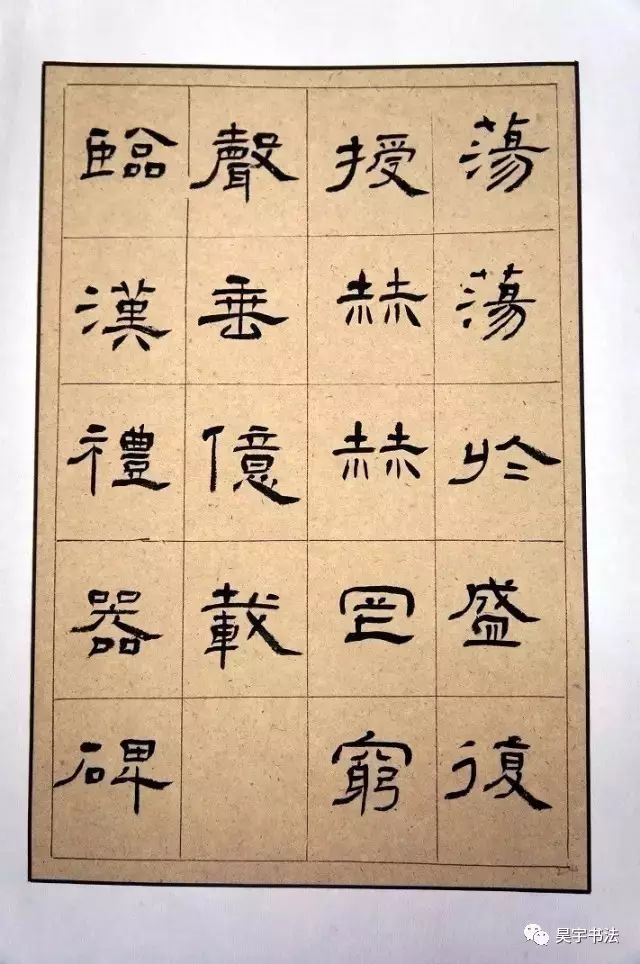 蕩蕩於盛復
授赫赫罔窮
聲垂億載
臨漢禮器碑
昊宇书法